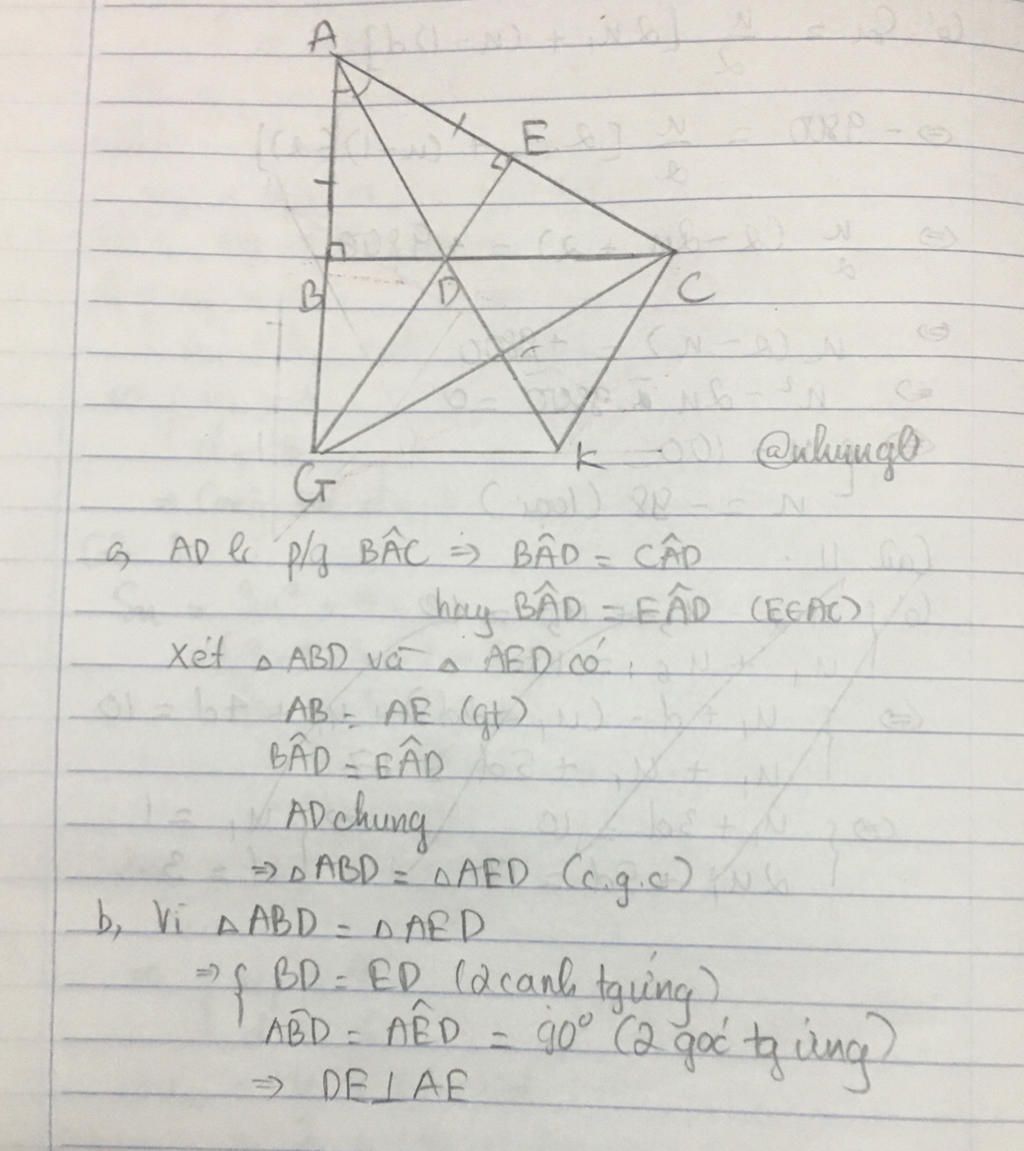 A
E
B
D
C
G
K
@nhungl
a, AD là p/g BÂC ⇒ BÂD = CÂD
hay BÂD = EÂD (E∈AC)
Xét △ ABD và △ AED có:
AB = AE (gt)
BÂD = EÂD
AD chung
⇒ △ABD = △AED (c.g.c)
b, Vì △ABD = △AED
⇒ { BD = ED (2 cạnh tg ứng)
AB̂D = AÊD = 90° (2 góc tg ứng)
⇒ DE⊥AE